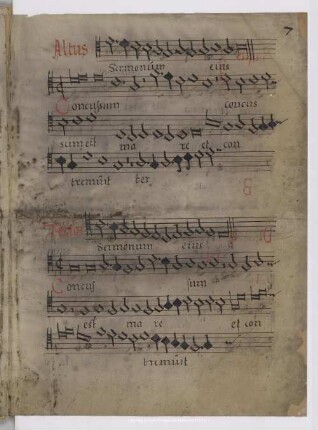 7
Altus
Sermonum eius
Concussum concus
sum est ma re et con
tremuit ter
Sermonum eius
Concus sum
est ma re et con
tremuit